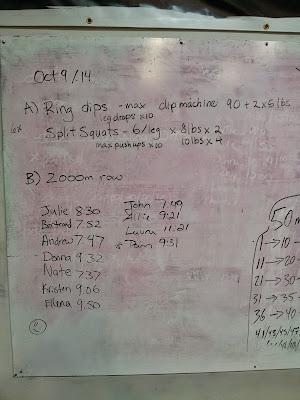 Oct 9/14
A) Ring dips - max dip machine 90 + 2x5 lbs
leg drops x10
6x Split Squats - 6/leg x 8lbs x 2
max pushups x10 10lbs x 4
B) 2000m row
Julie 8:30
Bertrand 7:52
Andrew 7:47
Donna 9:32
Nate 7:37
Kristen 9:06
Elena 9:50
John 7:49
Allie 9:21
Laura 11:21
Pam 9:31
50m
1 → 10
11 → 20
21 → 30
31 → 35
36 → 40